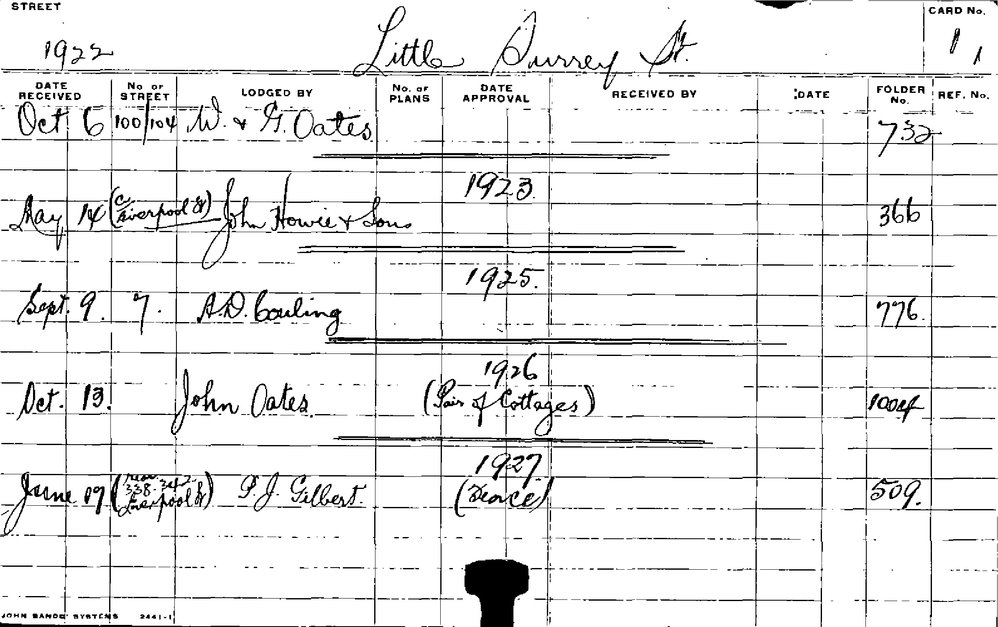 STREET
CARD No.
1922 Little Surrey St. 1
DATE RECEIVED No. OF STREET LODGED BY No. OF PLANS DATE APPROVAL RECEIVED BY DATE FOLDER No. REF. No.
Oct 6 100/104 W. & G. Oates 732
1923.
May 14 (C Liverpool St) John Howie & Sons 366
1925.
Sept. 9. 7. A.D. Couling 776.
1926
Oct. 13. John Oates. (Pair of Cottages) 1004
1927.
June 17 (rear 338-342 Liverpool St) P.J. Gilbert. (Fence) 509.
JOHN SANDS' SYSTEMS 2441-1